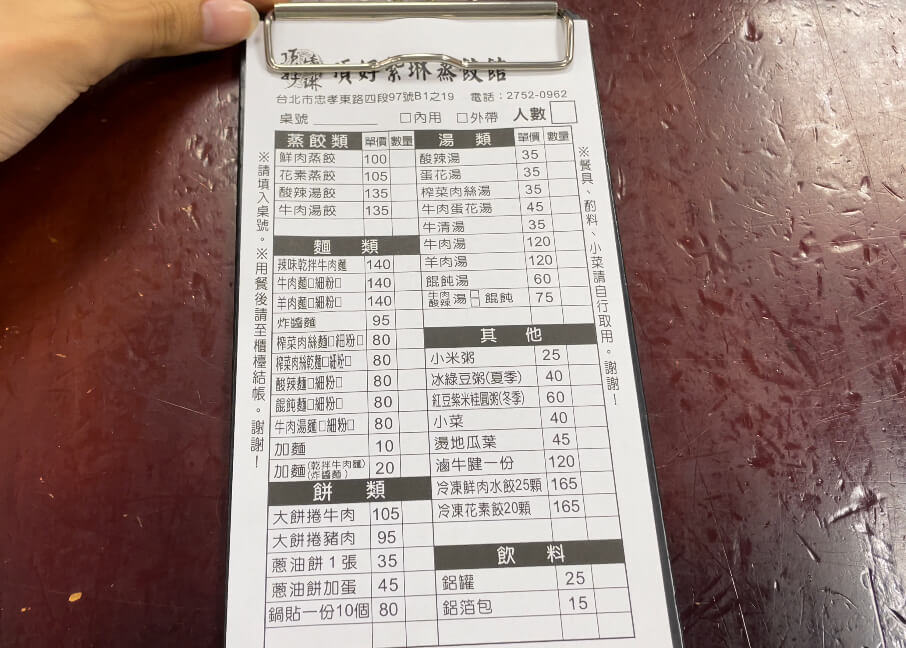 頂好紫琳蒸餃館
台北市忠孝東路四段97號B1之19 電話：2752-0962
桌號 □內用 □外帶 人數
※請填入桌號。※用餐後請至櫃檯結帳。謝謝！
蒸餃類 單價 數量
鮮肉蒸餃 100
花素蒸餃 105
酸辣湯餃 135
牛肉湯餃 135
麵類
辣味乾拌牛肉麵 140
牛肉麵□細粉□ 140
羊肉麵□細粉□ 140
炸醬麵 95
榨菜肉絲麵□細粉□ 80
榨菜肉絲乾麵□細粉□ 80
酸辣麵□細粉□ 80
餛飩麵□細粉□ 80
牛肉湯麵□細粉□ 80
加麵 10
加麵(乾拌牛肉麵)(炸醬麵) 20
餅類
大餅捲牛肉 105
大餅捲豬肉 95
蔥油餅1張 35
蔥油餅加蛋 45
鍋貼一份10個 80
湯類 單價 數量
酸辣湯 35
蛋花湯 35
榨菜肉絲湯 35
牛肉蛋花湯 45
牛清湯 35
牛肉湯 120
羊肉湯 120
餛飩湯 60
牛肉酸辣湯□□餛飩 75
其他
小米粥 25
冰綠豆粥(夏季) 40
紅豆紫米桂圓粥(冬季) 60
小菜 40
燙地瓜葉 45
滷牛腱一份 120
冷凍鮮肉水餃25顆 165
冷凍花素餃20顆 165
飲料
鋁罐 25
鋁箔包 15
※餐具、酌料、小菜請自行取用。謝謝！